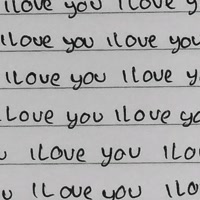 I Love you I Love y
I Love you I Love you
I Love you I Love y
Love you I Love yo
I Love you I Lo
I Love you I Lo